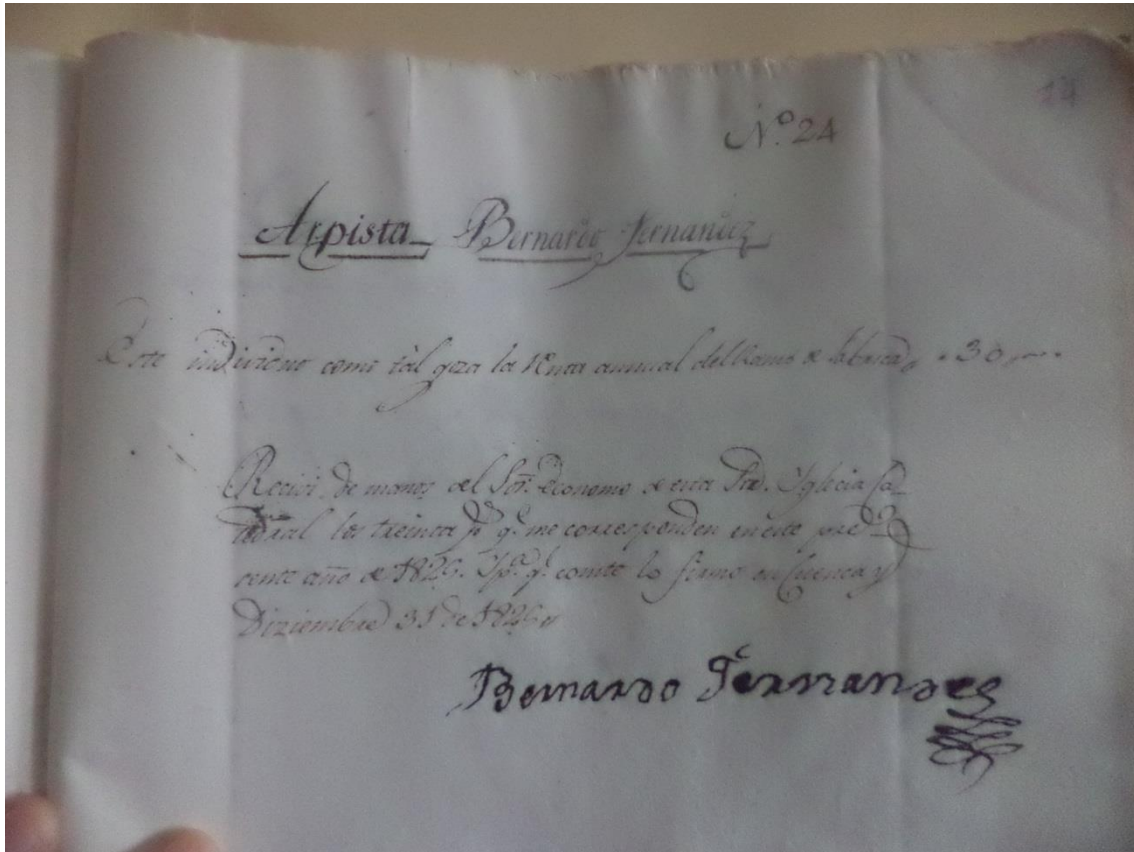 24
N.º 24
Arpista Bernardo Fernandez
Este individuo como tál goza la renta annual del Ramo de fabrica, " 30 p.s "
Recivi de manos del Sor. Economo de esta Sta. Iglecia Ca-
tedral los treinta p.s q.e me corresponden en este pre-
cente año de 1825. Y p.a q.e conste lo firmo en Cuenca y
Diziembre 31 de 1825
Bernardo Fernandes